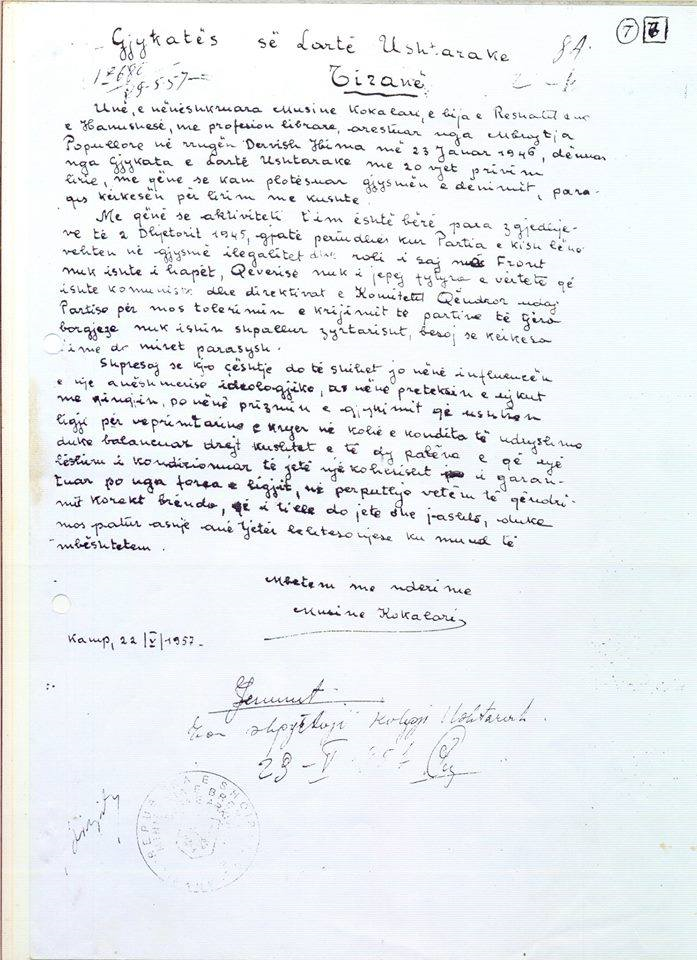 7 7
Gjykatës së Lartë Ushtarake 84.
Tiranë
Unë, e nënëshkruara Musine Kokalari, e bija e Reshatit e
e Hanushesë, me profesion librare, arestuar nga Mbrojtja
Popullore në rrugën Dervish Hima më 23 Janar 1946, dënuar
nga Gjykata e Lartë Ushtarake me 20 vjet privim
lirie, me qëne se kam plotësuar gjysmën e dënimit, para-
qes kërkesën për lirim me kusht.
Me qënë se aktiviteti t'im është bërë para zgjedhje-
ve të 2 Dhjetorit 1945, gjatë periudhës kur Partia e kish lënë
vehten në gjysmë ilegalitet dhe roli i saj në Front
nuk ishte i hapët, Qeverisë nuk i jepej fytyra e vërtetë që
ishte komuniste dhe direktivat e Komitetit Qëndror ndaj
Partisë për mos tolerimin e krijimit të partive të tjera
borgjeze nuk ishin shpallur zyrtarisht, besoj se kërkesa
ime do miret parasysh.
Shpresoj se kjo çështje do të shihet jo nënë influencën
e nje anëshmërisë ideologjike, as nënë preteksin e ujkut
me qingjin, po nënë prizmin e gjykimit që ushtron
ligji për veprimtarinë e kryer në kohë e kondita të ndryshme
duke balancuar drejt kushtet e të dy palëve e që një
lëshim i kondicionuar të jetë një kohërisht i garan-
tuar po nga forca e ligjit, në përputhje vetëm të qëndri-
mit korekt brënda, që i tille do jetë dhe jashtë, duke
mos patur asnje anë tjetër lehtësonjëse ku mund të
mbështetem.
Mbetem me nderime
Musine Kokalari
Kamp, 22/V/1957.
Ushtarak.
23-V 1957